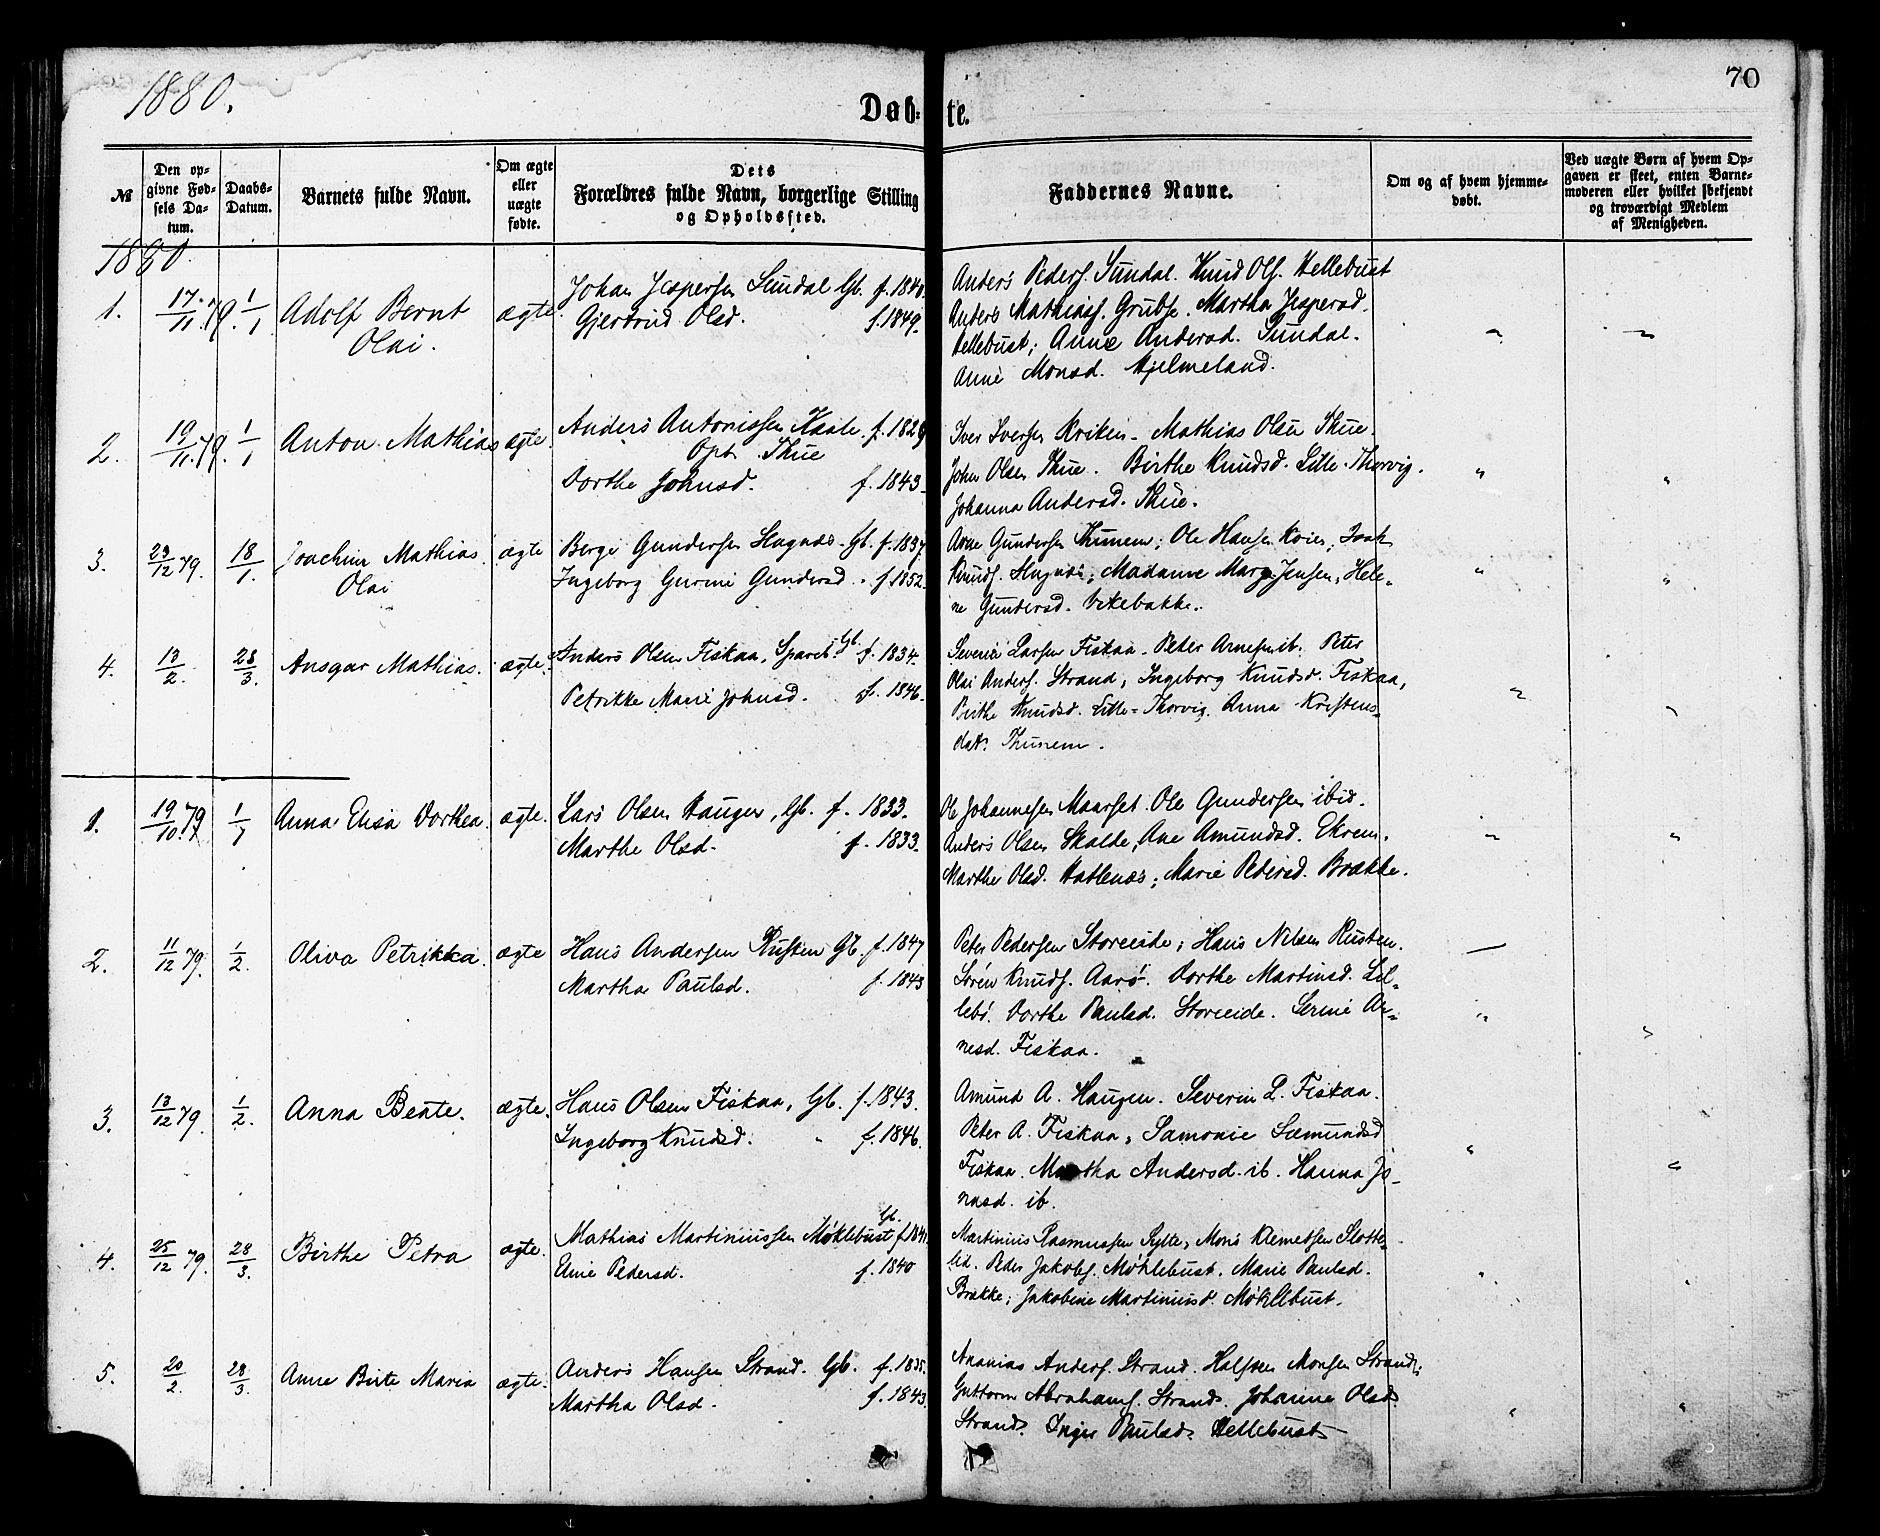 1880.
70
Døbte.
№
Den op-
givne Fød-
sels Da-
tum.
Daabs-
Datum.
Barnets fulde Navn.
Om ægte
eller
uægte
fødte.
Dets
Forældres fulde Navn, borgerlige Stilling
og Opholdssted.
Faddernes Navne.
Om og af hvem hjemme-
døbt.
Ved uægte Børn af hvem Op-
gaven er skeet, enten Barne-
moderen eller hvilket bekjendt
og troværdigt Medlem
af Menigheden.
1880
1. 17/11 79. 1/1 Adolf Bernt
Olai.
ægte
Johan Jespersen Sundal Gb. f. 1840.
Gjertrud Olsd. f. 1849.
Anders Peders. Sundal. Knud Ols. Hellebust
Anders Mathias. Grubse. Martha Jespersd.
Hellebust; Anne Andersd. Sundal.
Anne Monsd. Hjelmeland.
2. 19/11 79. 1/1 Anton Mathias ægte.
Anders Antonissen Kaale. f. 1829
Opt. Thue
Dorthe Johnsd. f. 1843.
Iver Iversen Kriken. Mathias Olsen Thue.
John Olsen Thue. Birthe Knudsd. Lille-Thorvig.
Johanna Andersd. Thue.
3. 23/12 79. 18/1. Joachim Mathias
Olai
ægte
Berge Gundersen Hugnæs. Gb. f. 1837.
Ingeborg Gurine Gundersd. f. 1852.
Arne Gundersen Thunem; Ole Hansen Koien; Isak
Knuds. Hugnæs; Madame Marg. Jensen, Hele-
ne Gundersd. Vikebakke.
4. 13/2. 28/3. Ansgar Mathias. ægte.
Anders Olsen Fiskaa, Spareb. Gb. f. 1834.
Petrikke Marie Johnsd. f. 1846.
Severin Larsen Fiskaa. Peter Arnesen ib. Peter
Olai Anders. Strand, Ingeborg Knudsd. Fiskaa,
Birthe Knudsd. Lille-Thorvig. Anna Kristens-
dat. Thunem.
1. 19/10 79 1/1 Anna Elisa Dorthea. ægte.
Lars Olsen Haugen, Gb. f. 1833.
Marthe Olsd. f. 1833.
Ole Johannesen Maarset. Ole Gundersen ibid.
Anders Olsen Skalde, Ane Amundsd. Ekrem.
Marthe Olsd. Hatlenæs; Marie Pedersd. Brække.
2. 11/12 79. 1/2. Oliva Petrikka. ægte
Hans Andersen Rusten Gb. f. 1847
Martha Paulsd. f. 1843
Peter Pedersen Storeeide; Hans Nilsen Rusten.
Søren Knuds. Aarø. Dorthe Martinsd. Lil-
lebø. Dorthe Paulsd. Storeeide. Serine Ar-
nesd. Fiskaa.
3. 13/12 79. 1/2. Anna Beate. ægte.
Hans Olsen Fiskaa, Gb. f. 1843.
Ingeborg Knudsd. f. 1846.
Amund A. Haugen. Severin L. Fiskaa.
Peter A. Fiskaa, Samonie Sæmundsd
Fiskaa. Martha Andersd. ib. Hanna Jo-
nasd. ib.
4. 25/12 79. 28/3. Birthe Petra ægte.
Mathias Martinussen Møklebust Gb. f. 1841.
Elne Pedersd. f. 1840
Martinus Rasmussen Sylte, Mons Klemetsen Slotte-
lid. Peder Jakobs. Møklebust. Marie Paulsd.
Brække; Jakobine Martinusd. Møklebust.
5. 20/2. 28/3. Anne Birte Maria ægte.
Anders Hansen Strand. Gb. f. 1835.
Martha Olsd. f. 1843.
Ananias Anders. Strand. Halsten Monsen Strand;
Guttorm Abrahams. Strand. Johanne Olsd.
Strand. Inger Paulsd. Hellebust